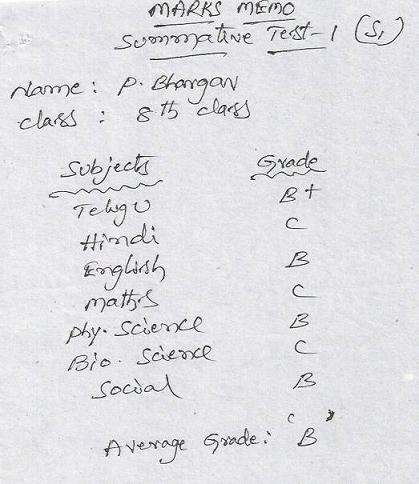 MARKS MEMO
Summative Test-1 (S1)
Name : P. Bhargav
class : 8th class
Subjects Grade
Telugu B+
Hindi C
English B
maths C
phy. Science B
Bio. Science C
Social B
Average Grade : 'B'